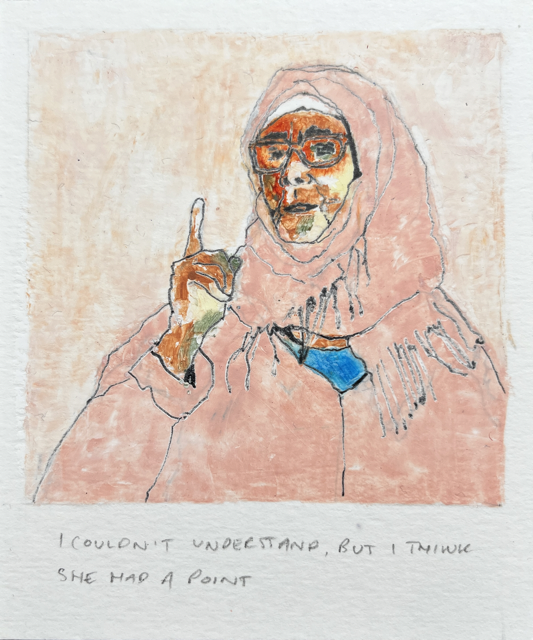 I COULDN'T UNDERSTAND, BUT I THINK
SHE HAD A POINT